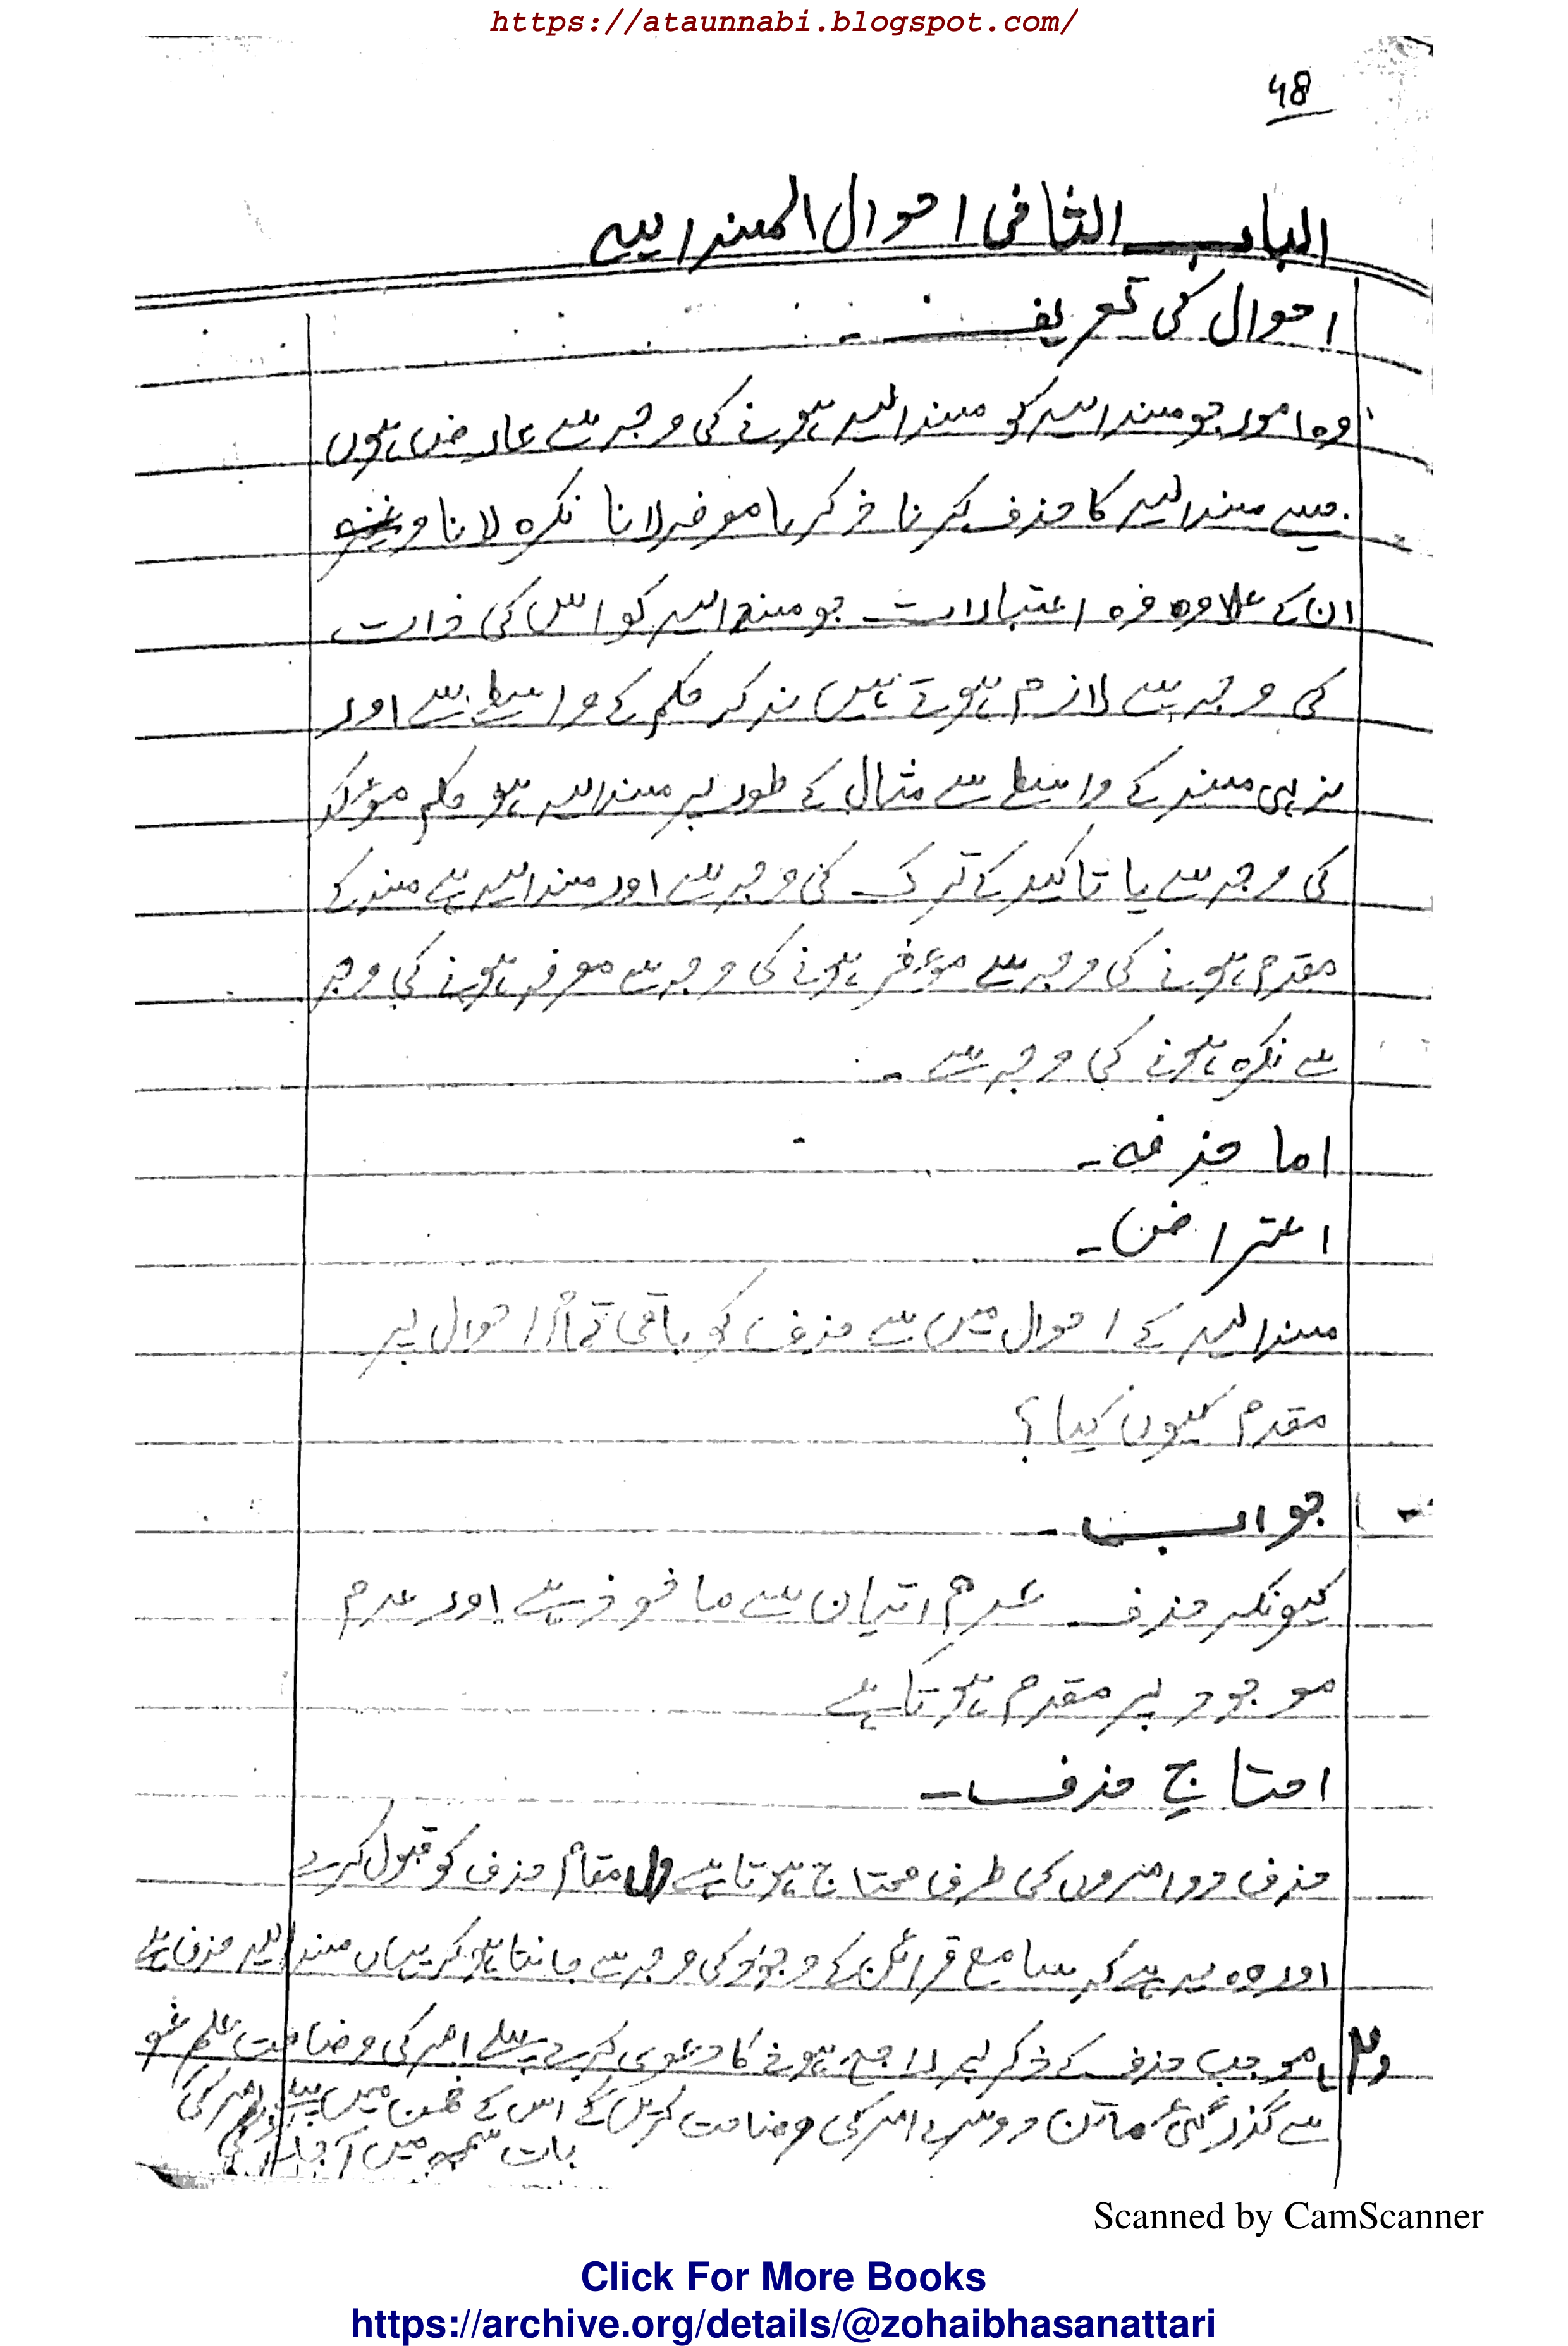 https://ataunnabi.blogspot.com/
48
الباب الثانی احوال المسند الیہ
احوال کی تعریف ۔
وہ امور جو مسند الیہ کو مسند الیہ ہونے کی وجہ سے عارض ہوں
جیسے مسند الیہ کا حذف کرنا ذکر کرنا معرفہ لانا نکرہ لانا وغیرہ
ان کے علاوہ وہ اعتبارات جو مسند الیہ کو اس کی ذات
کی وجہ سے لازم ہوتے ہیں نہ کہ حکم کے واسطے سے اور
نہ ہی مسند کے واسطے سے مثال کے طور پر مسند الیہ ہو حکم مؤکد
کی وجہ سے یا تاکید کے ترک کی وجہ سے اور مسند الیہ ہے مسند کے
مقدم ہونے کی وجہ سے مؤخر ہونے کی وجہ سے معرفہ ہونے کی وجہ
سے نکرہ ہونے کی وجہ سے ۔
اما حذفہ ۔
اعتراض ۔
مسند الیہ کے احوال میں سے حذف کو باقی تمام احوال پر
مقدم کیوں کیا ؟
جواب ۔
کیونکہ حذف عدم اتیان سے ماخوذ ہے اور عدم
موجود پر مقدم ہوتا ہے
احتاج حذف ۔
حذف دو امروں کی طرف محتاج ہوتا ہے مقام حذف کو قبول کرے
اور وہ یہ ہے کہ سامع قرائن کے وجود کی وجہ سے جانتا ہو کہ یہاں مسند الیہ حذف ہے
۲ موجب حذف کے ذکر پر راجح ہونے کا دعوی کرے پہلے امر کی وضاحت علم نحو
سے گذر گئی ماتن دوسرے امر کی وضاحت کریں گے اس کے ضمن میں پہلے امر کی
بات سمجھ میں آ جائے گی
Scanned by CamScanner
Click For More Books
https://archive.org/details/@zohaibhasanattari